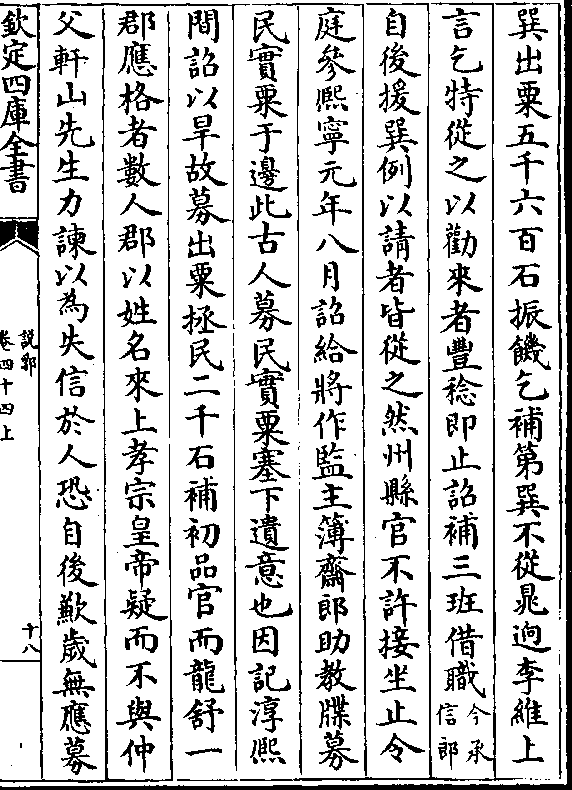 巽出粟五千六百石振饑乞補第巽不從晁逈李維上
言乞特從之以勸來者豐稔即止詔補三班借職今承信郎
自後援巽例以請者皆從之然州縣官不許接坐止令
庭參熙寧元年八月詔給將作監主簿齋郎助教牒募
民實粟于邊此古人募民實粟塞下遺意也因記淳熙
間詔以旱故募出粟拯民二千石補初品官而龍舒一
郡應格者數人郡以姓名來上孝宗皇帝疑而不與仲
父軒山先生力諫以為失信於人恐自後歉歲無應募
欽定四庫全書
說郛
卷四十四上
十八